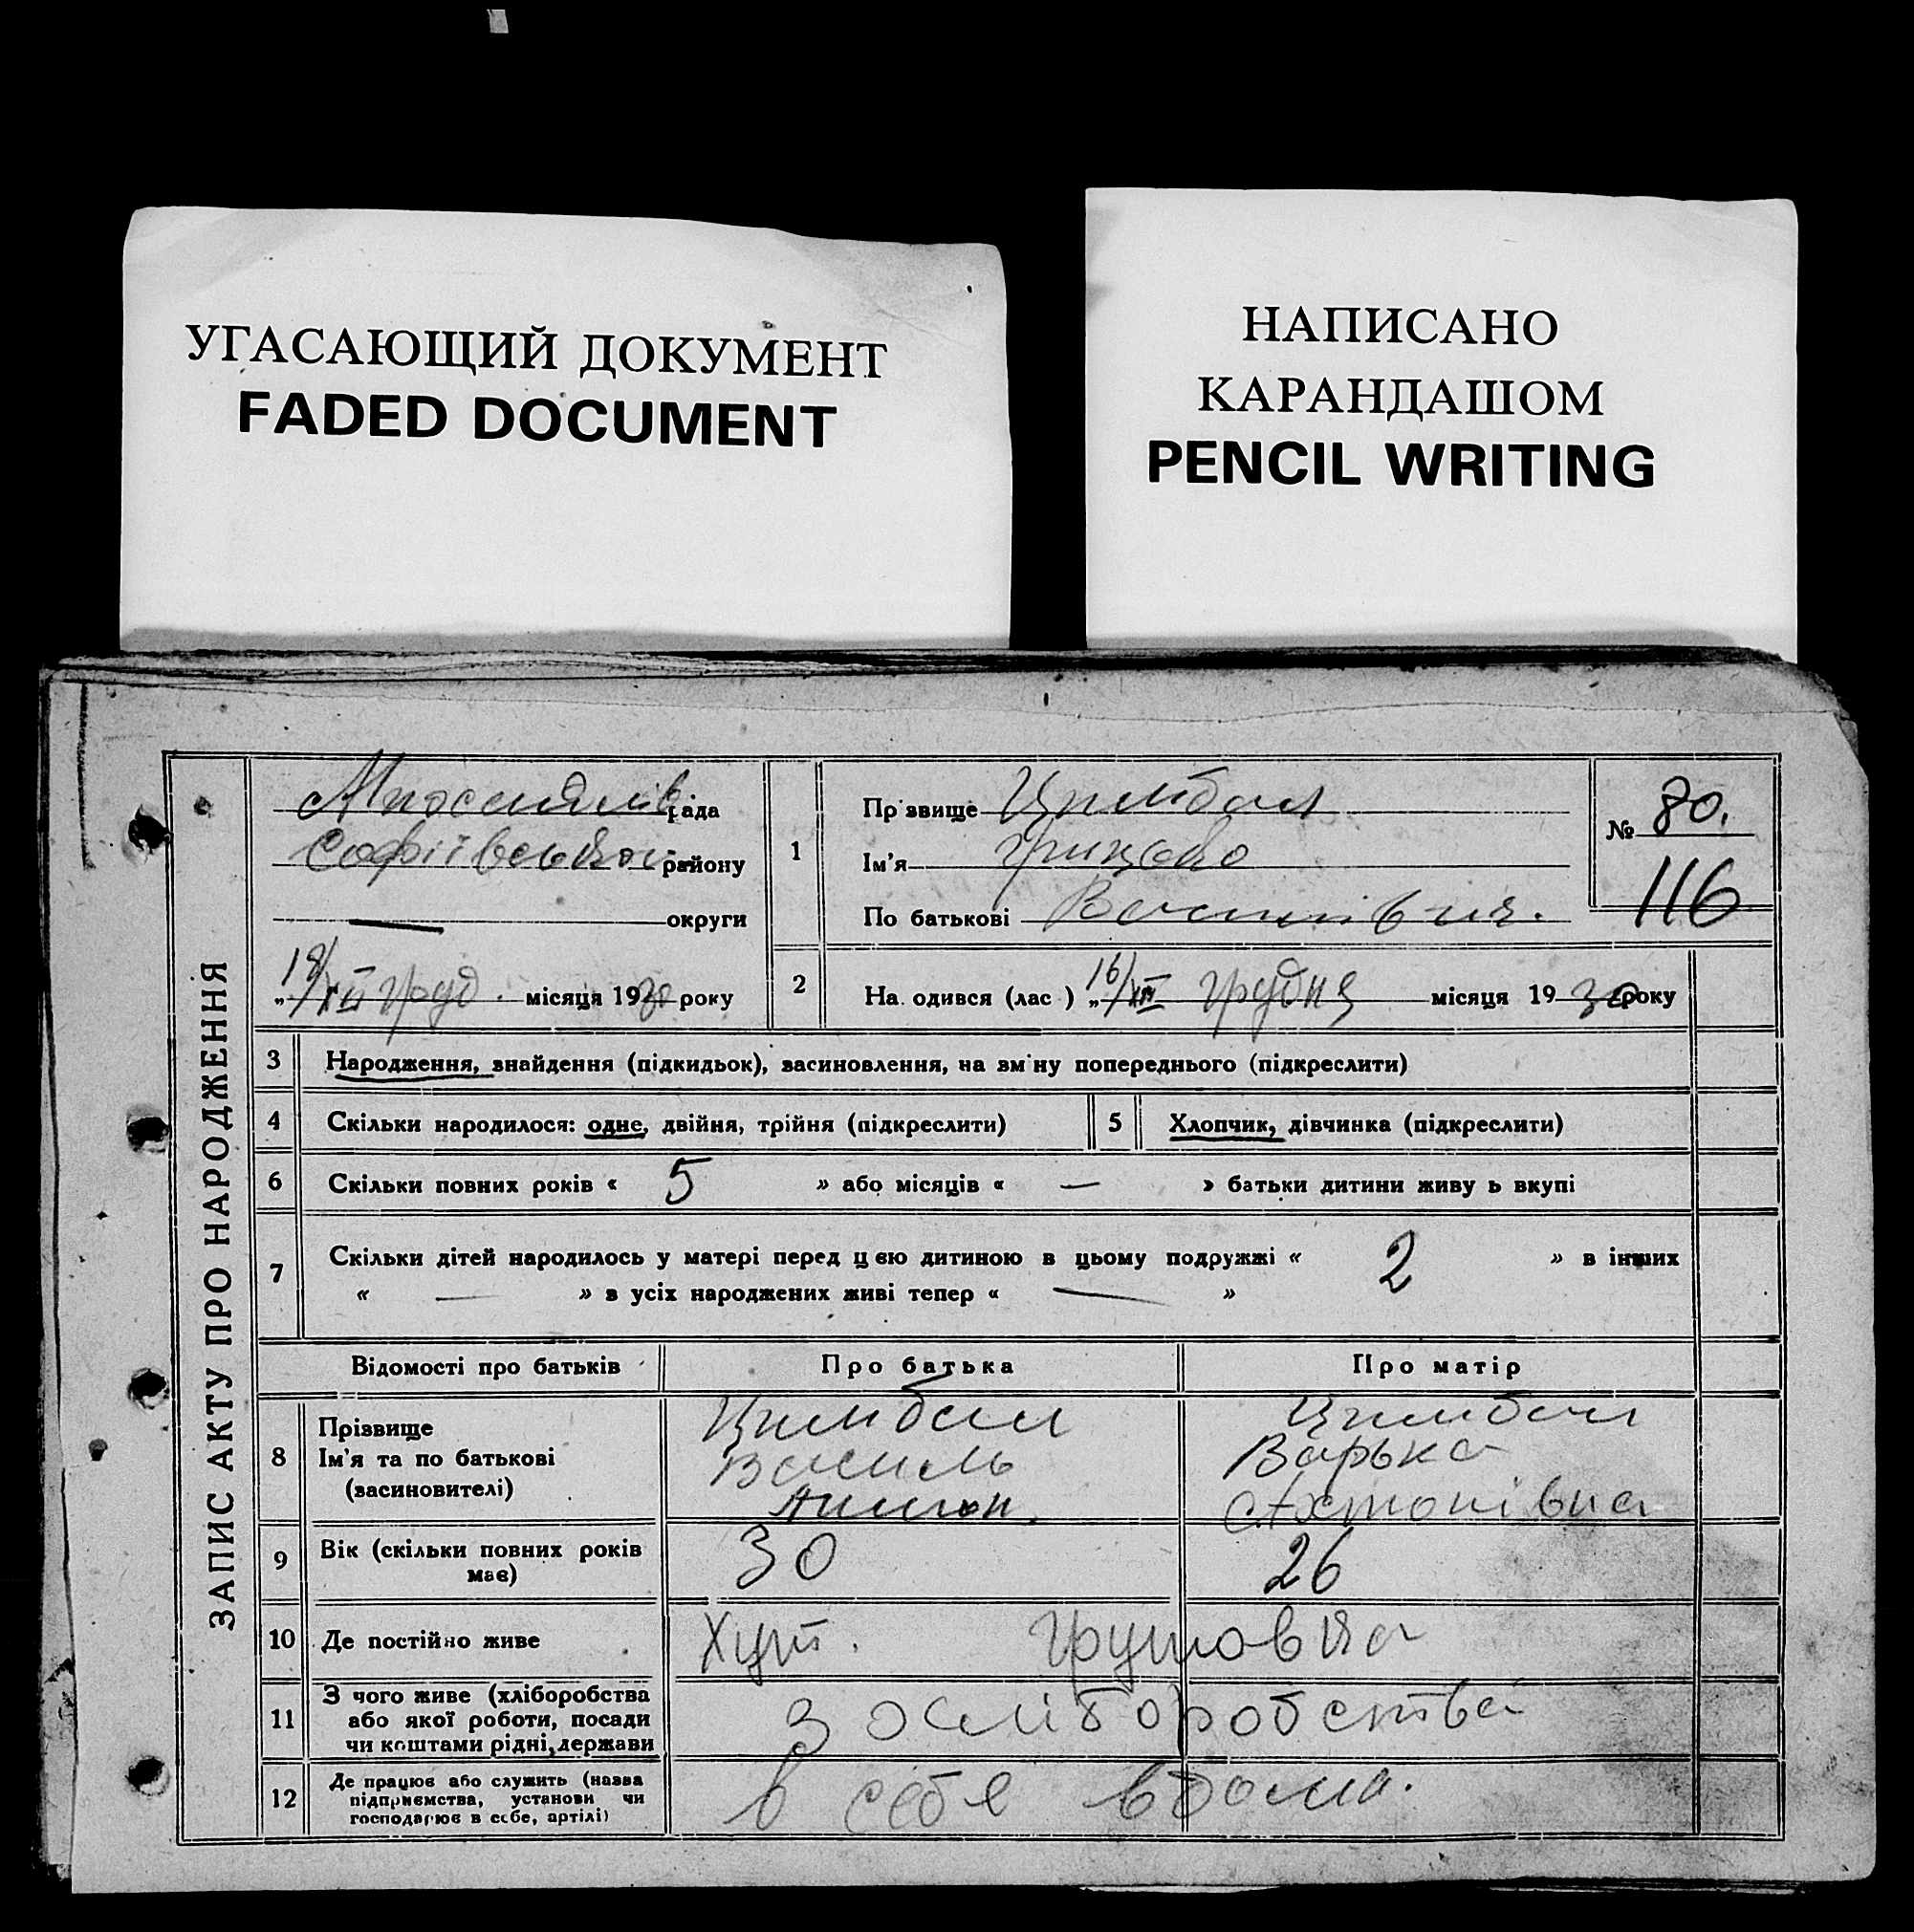 УГАСАЮЩИЙ ДОКУМЕНТ
FADED DOCUMENT
НАПИСАНО
КАРАНДАШОМ
PENCIL WRITING
ЗАПИС АКТУ ПРО НАРОДЖЕННЯ
рада
Софіївської району
— округи
„18/XII груд. місяця 1930 року
1
Прізвище Цимбал
Ім'я
По батькові
№ 80.
116
2 На одився (лас ) „16/XII грудня місяця 19 30 року
3 Народження, знайдення (підкидьок), засиновлення, на зм ну попереднього (підкреслити)
4 Скільки народилося: одне, двійня, трійня (підкреслити) 5 Хлопчик, дівчинка (підкреслити)
6 Скільки повних років « 5 » або місяців « — » батьки дитини живу ь вкупі
7 Скільки дітей народилось у матері перед цею дитиною в цьому подружжі « 2 » в інших
« — » в усіх народжених живі тепер « — »
Відомості про батьків Про батька Про матір
8 Прізвище Цимбал Цимбал
Ім'я та по батькові Василь Варька
(засиновителі)
9 Вік (скільки повних років має) 30 26
10 Де постійно живе Хут. Грушовка
11 З чого живе (хліборобства
або якої роботи, посади
чи коштами рідні, держави
З хліборобства
12 Де працює або служить (назва
підприємства, установи чи
господарює в себе, артілі)
в себе вдома.